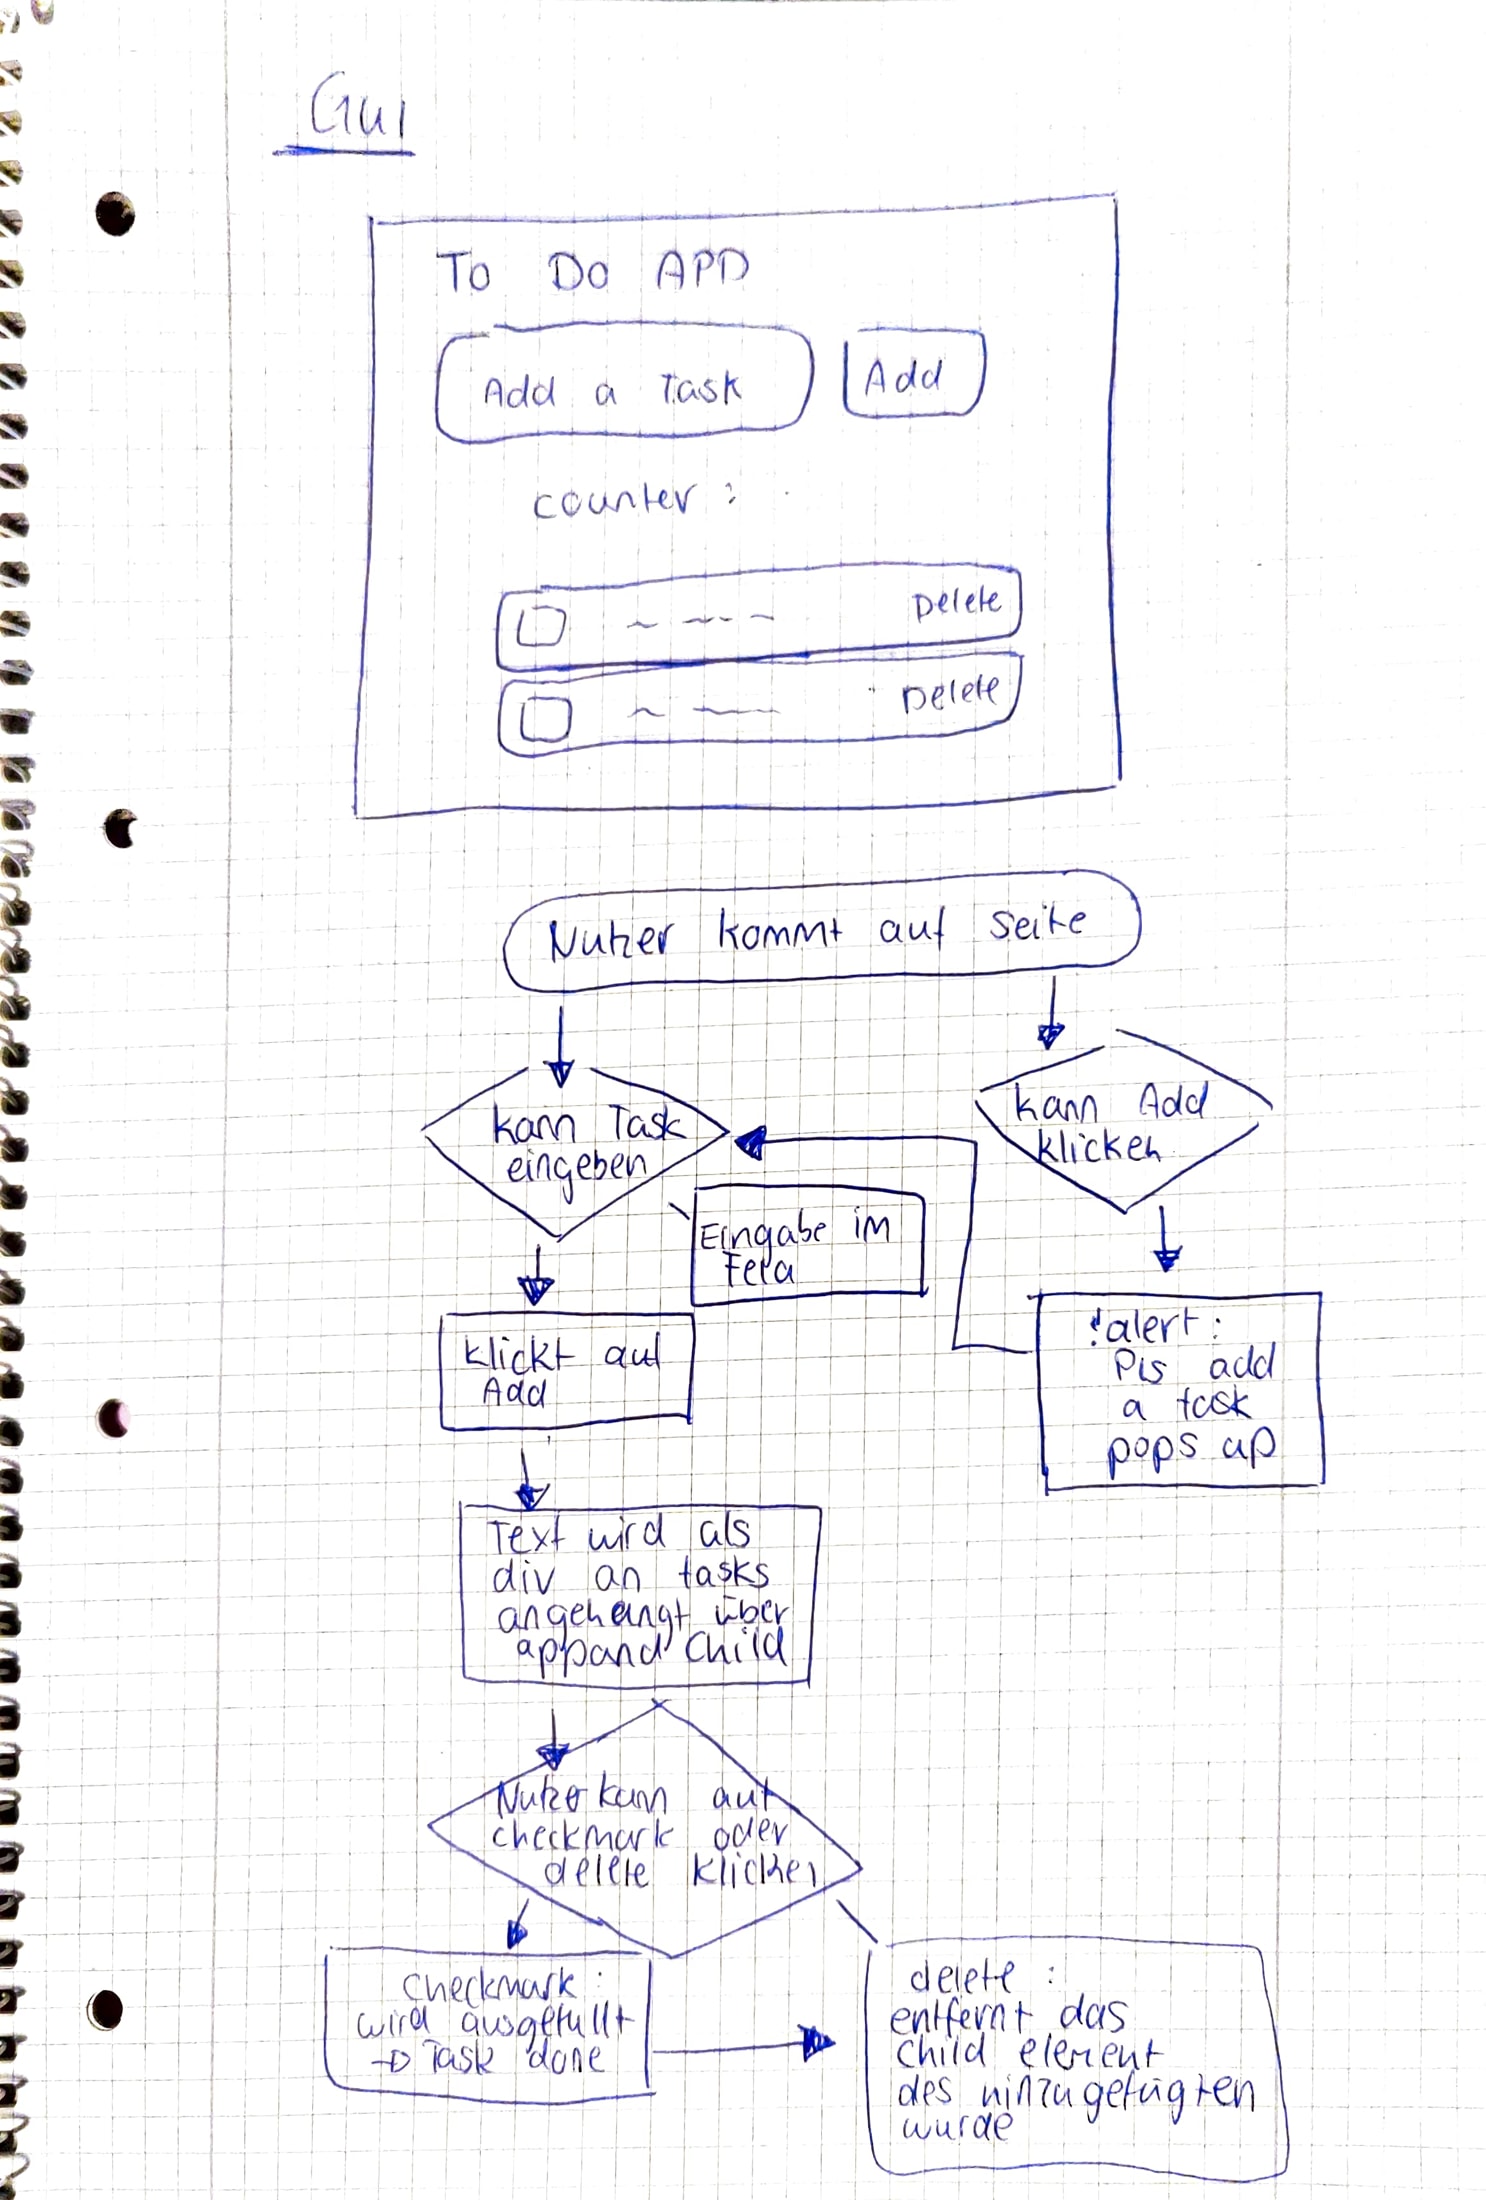 Gui
To Do APP
Add a Task
Add
counter :
Delete
Delete
Nutzer kommt auf Seite
kann Task
eingeben
kann Add
klicken
Eingabe im
Feld
klickt auf
Add
!alert:
Pls add
a task
pops up
Text wird als
div an tasks
angehängt über
appand Child
Nutzer kann auf
checkmark oder
delete klicken
checkmark :
wird ausgefüllt
→ Task done
delete :
entfernt das
Child element
des hinzugefügten
wurde